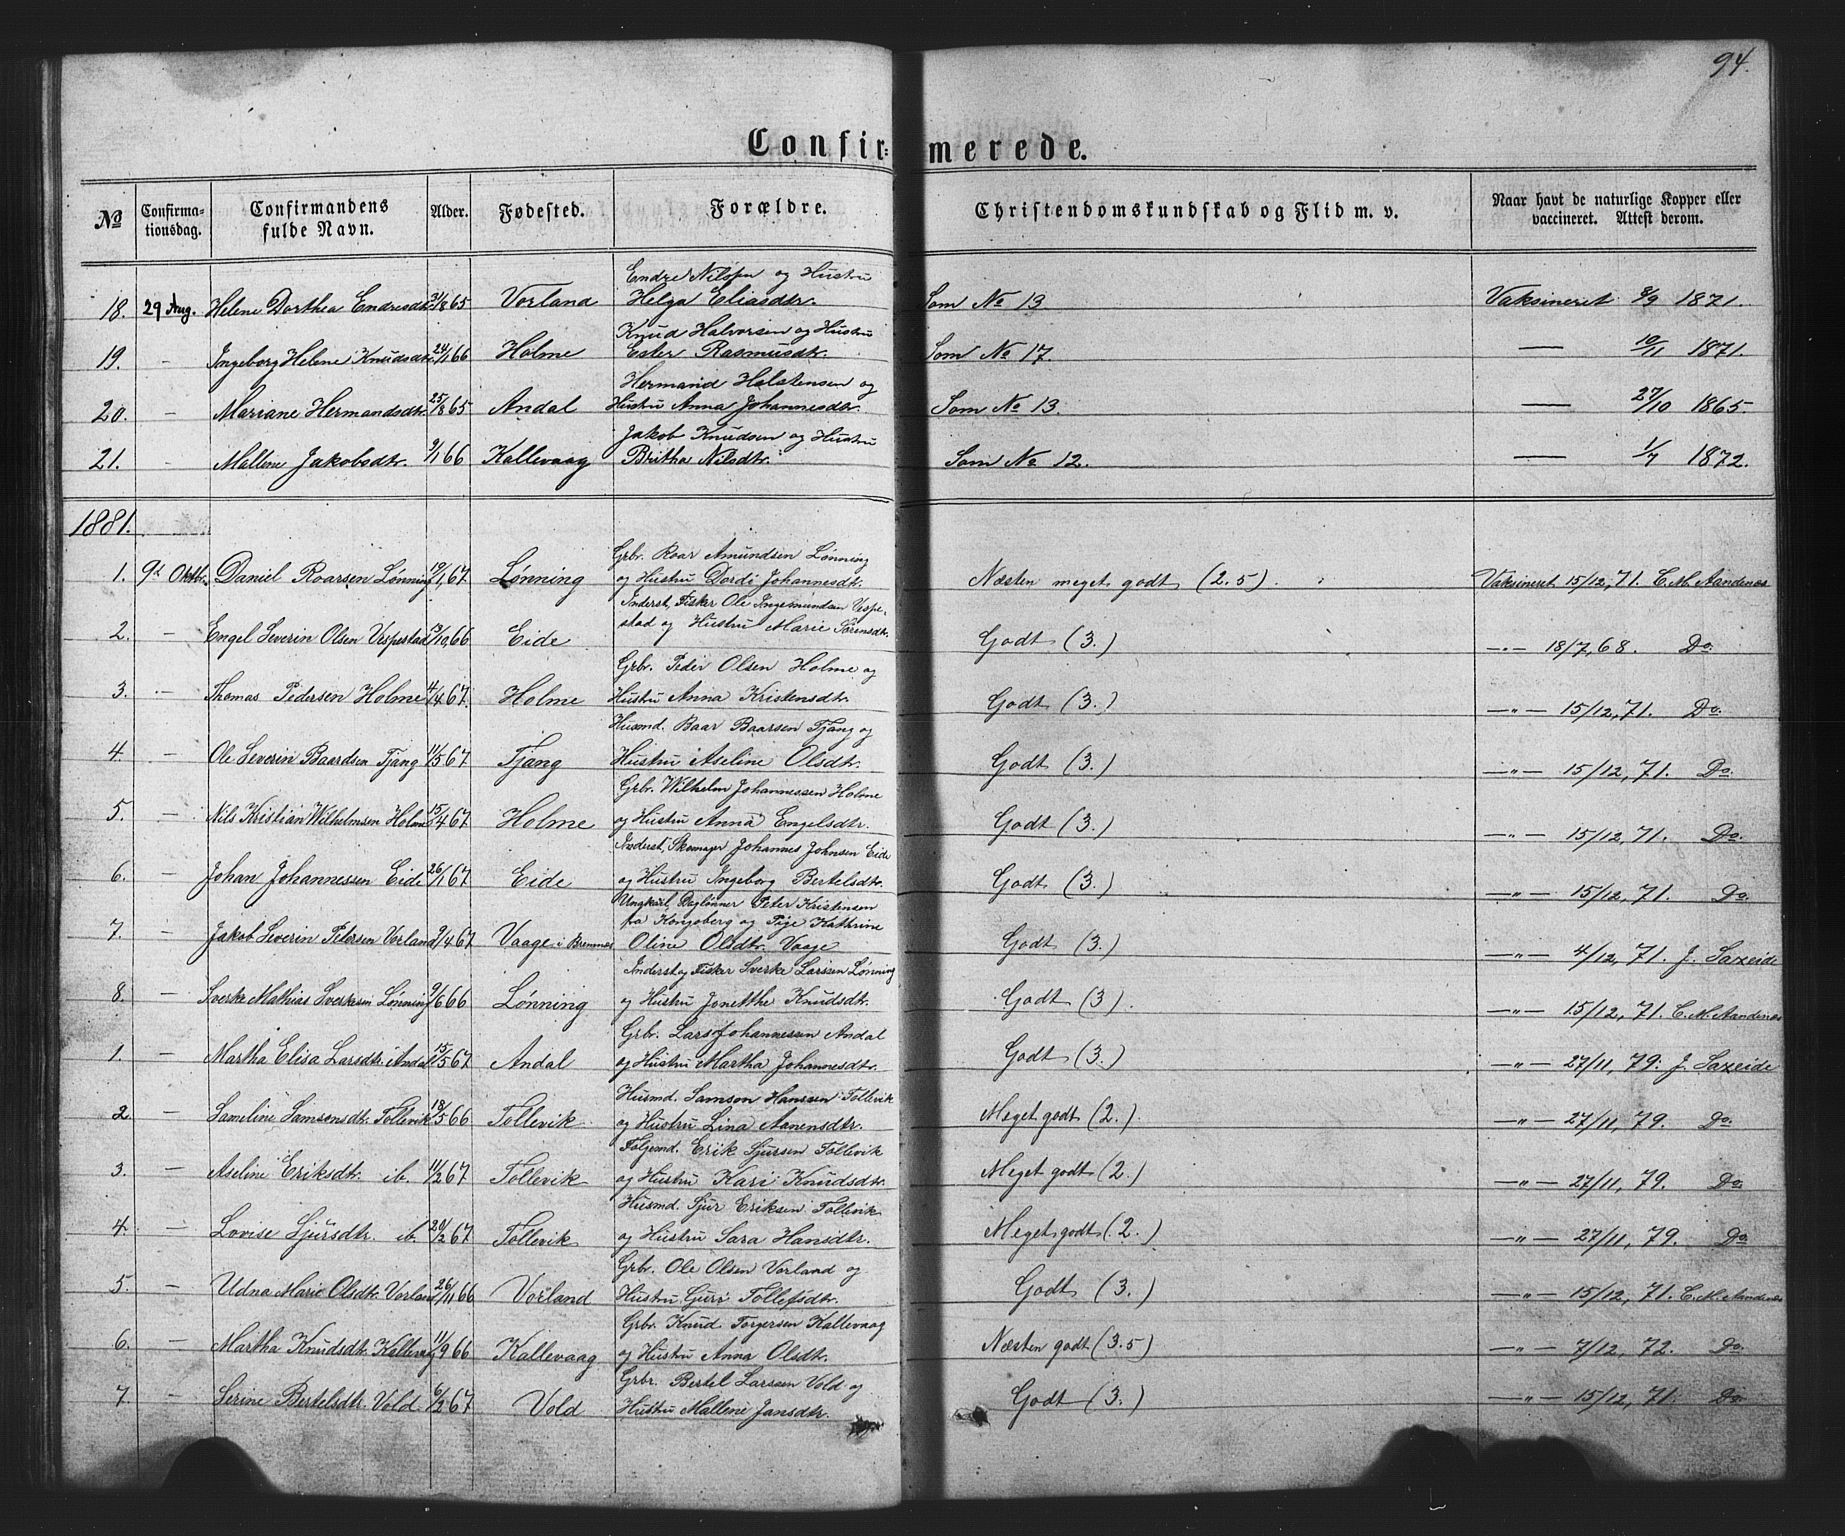 94.
Confir=merede.
No Confirma-tionsdag. Confirmandens fulde Navn. Alder. Fødested. Forældre. Christendomskundskab og Flid m. v. Naar havt de naturlige Kopper eller vaccineret. Attest derom.
Endre Nilsen og Hustru
18. 29 Aug. Helene Dorthea Endresdtr. 31/8 65 Vorland Helga Eliasdtr. Som No 13. Vaksineret 8/9 1871.
Knud Halvorsen og Hustru
19. - Ingeborg Helene Knudsdtr. 24/1 66 Holme Ester Rasmusdtr. Som No 17. — 10/11 1871.
Hermand Holstensen og
20. - Mariane Hermandsdtr. 25/8 65 Andal Hustru Anna Johannesdtr. Som No 13. — 27/10 1865.
Jakob Knudsen og Hustru
21. - Mallene Jakobsdtr. 9/1 66 Kallevaag Britha Nilsdtr. Som No 12. — 1/7 1872.
1881.
Grbr. Roar Amundsen Lønning
1. 9d Oktbr. Daniel Roarsen Lønning 19/1 67. Lønning og Hustru Dordi Johannesdtr. Næsten meget godt (2.5). Vaksineret 15/12, 71. C. M. Aandenæs
Inderst, Fisker Ole Ingemundsen Vespe-
2. - Engel Severin Olsen Vespestad 13/10 66 Eide stad og Hustru Marie Sørensdtr. Godt (3.) —"— 18/7, 68. Do.
Grbr. Peder Olsen Holme og
3. - Thomas Pedersen Holme 4/4 67. Holme Hustru Anna Kristensdtr. Godt (3.) —"— 15/12, 71. Do.
Husmd. Baar Baarsen Tjang og
4. - Ole Severin Baardsen Tjang 11/5 67. Tjang Hustru Aseline Olsdtr. Godt (3.) —"— 15/12, 71. Do.
Grbr. Wilhelm Johannessen Holme
5. - Nils Kristian Wilhelmsen Holme 15/4 67. Holme og Hustru Anna Engelsdtr. Godt (3.) —"— 15/12, 71. Do.
Inderst, Skomager Johannes Johnsen Eide
6. - Johan Johannessen Eide 26/1 67 Eide og Hustru Ingeborg Bertelsdtr. Godt (3.) —"— 15/12, 71. Do.
Ungkarl, Daglønner Peter Kristensen
fra Kongsberg og Pige Kathrine
7. - Jakob Severin Petersen Vorland 9/4 67 Vaage i Bremnes Oline Olsdtr. Vaage Godt (3.) —"— 4/12, 71. J. Saxeide
Inderst og Fisker Sverke Larssen Lønning
8. - Sverke Mathias Sverkesen Lønning 9/6 66 Lønning og Hustru Jonetthe Knudsdtr. Godt (3) —"— 15/12, 71. C. M. Aandenæs
Grbr. Lars Johannessen Andal
1. - Martha Elisa Larsdtr. Andal 15/5 67 Andal og Hustru Martha Johannesdtr. Godt (3.) —"— 27/11, 79. J. Saxeide
Husmd. Samson Hanssen Tollevik
2. - Sameline Samsonsdtr. Tollevik 18/5 66 Tollevik og Hustru Lina Aanensdtr. Meget godt (2.) —"— 27/11, 79. Do.
Følgemd. Erik Sjursen Tollevik
3. - Aseline Eriksdtr. ib. 11/2 67 Tollevik og Hustru Kari Knudsdtr. Meget godt (2.) —"— 27/11, 79. Do.
Husmd. Sjur Eriksen Tollevik
4. - Lovise Sjursdtr. ib. 20/2 67 Tollevik og Hustru Sara Hansdtr. Meget godt (2.) —"— 27/11, 79. Do.
Grbr. Ole Olsen Vorland og
5. - Udna Marie Olsdtr. Vorland 26/11 66 Vorland Hustru Guri Tollefsdtr. Godt (3.) —"— 15/12, 71. C. M. Aandenæs
Grbr. Knud Torgersen Kallevaag
6. - Martha Knudsdtr. Kallevaag 11/9 66 Kallevaag og Hustru Anna Olsdtr. Næsten godt (3.5) —"— 7/12, 72. Do.
Grbr. Bertel Larssen Vold og
7. - Serine Bertelsdtr. Vold 6/2 67 Vold Hustru Mallene Jansdtr. Godt (3.) —"— 15/12, 71. Do.